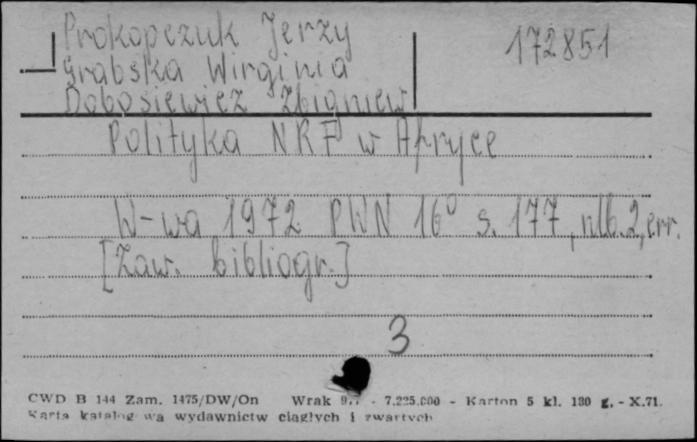 Prokopczuk Jerzy 172851
Grabska Wirginia
Dobosiewicz Zbigniew
Polityka NRF w Afryce
W-wa 1972 PWN 16⁰ s. 177, nlb. 2, err.
[Zaw. bibliogr.]
3
CWD B 144 Zam. 1475/DW/On Wrak - 7.225.000 - Karton 5 kl. 180 g. - X.71.
Karta katalogowa wydawnictw ciągłych i zwartych